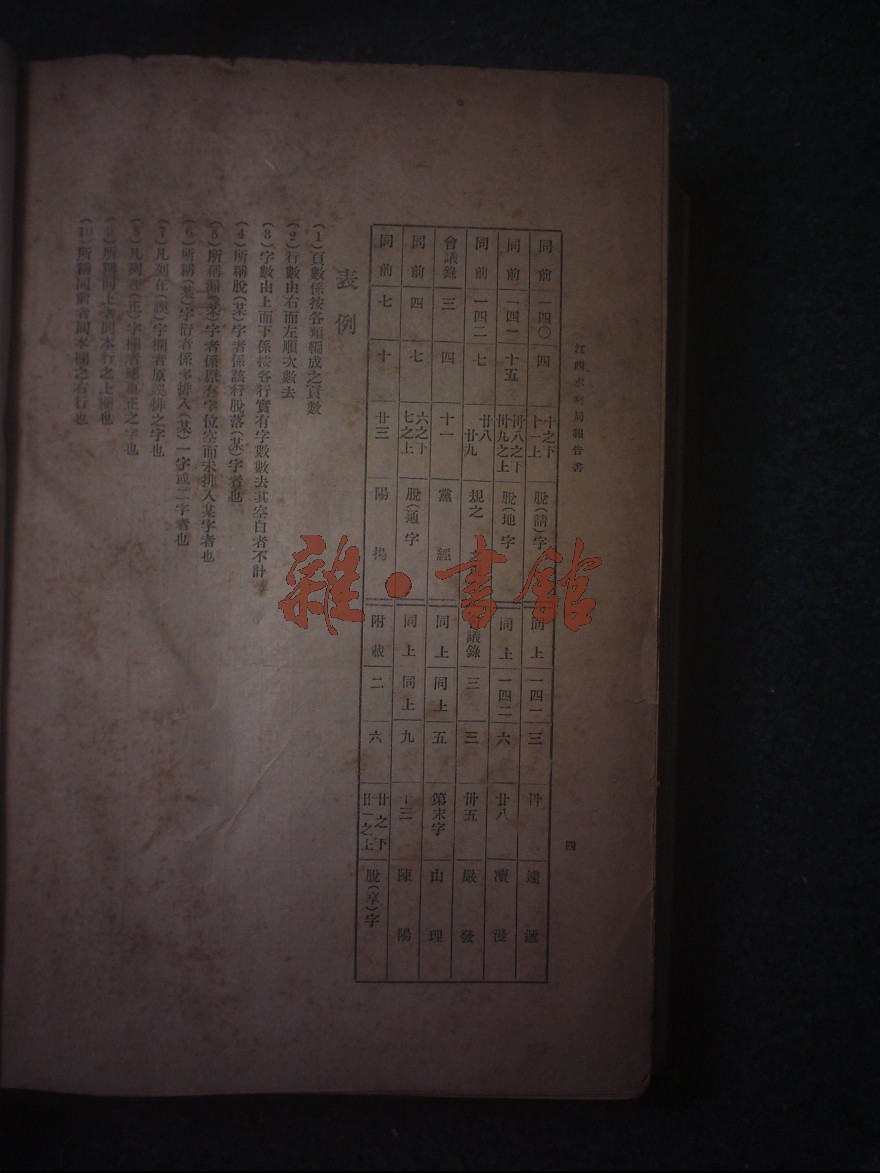 江西水利局報告書
四
同前 一四〇 四 十之下十一上 脫(請)字 同上 一四一 三 卅
同前 一四一 十五 卅八之下卅九之上 脫(地)字 同上 一四二 六 廿八 漫
同前 一四二 七 廿八廿九 規之 議錄 三 三 卅五 嚴 發
會議錄 三 四 十一 黨 經 同上 同上 五 第末字 山 理
同前 四 七 六之下七之上 脫(通)字 同上 同上 九 十三 陳 陽
同前 七 十 廿三 陽 揚 附載 二 六 廿之下廿一之上 脫(享)字
表例
(1)頁數係按各類編成之頁數
(2)行數由右而左順次數去
(3)字數由上而下係按各行實有字數數去其空白者不計
(4)所稱脫(某)字者係該行脫落(某)字者也
(5)所稱漏(某)字者係原有字位空而未排入某字者也
(6)所稱(某)字衍者係多排入(某)一字或二字者也
(7)凡列在(誤)字欄者原誤排之字也
(8)凡列在(正)字欄者應更正之字也
(9)所稱同上者同本行之上欄也
(10)所稱同前者同本欄之右行也
雜·書館